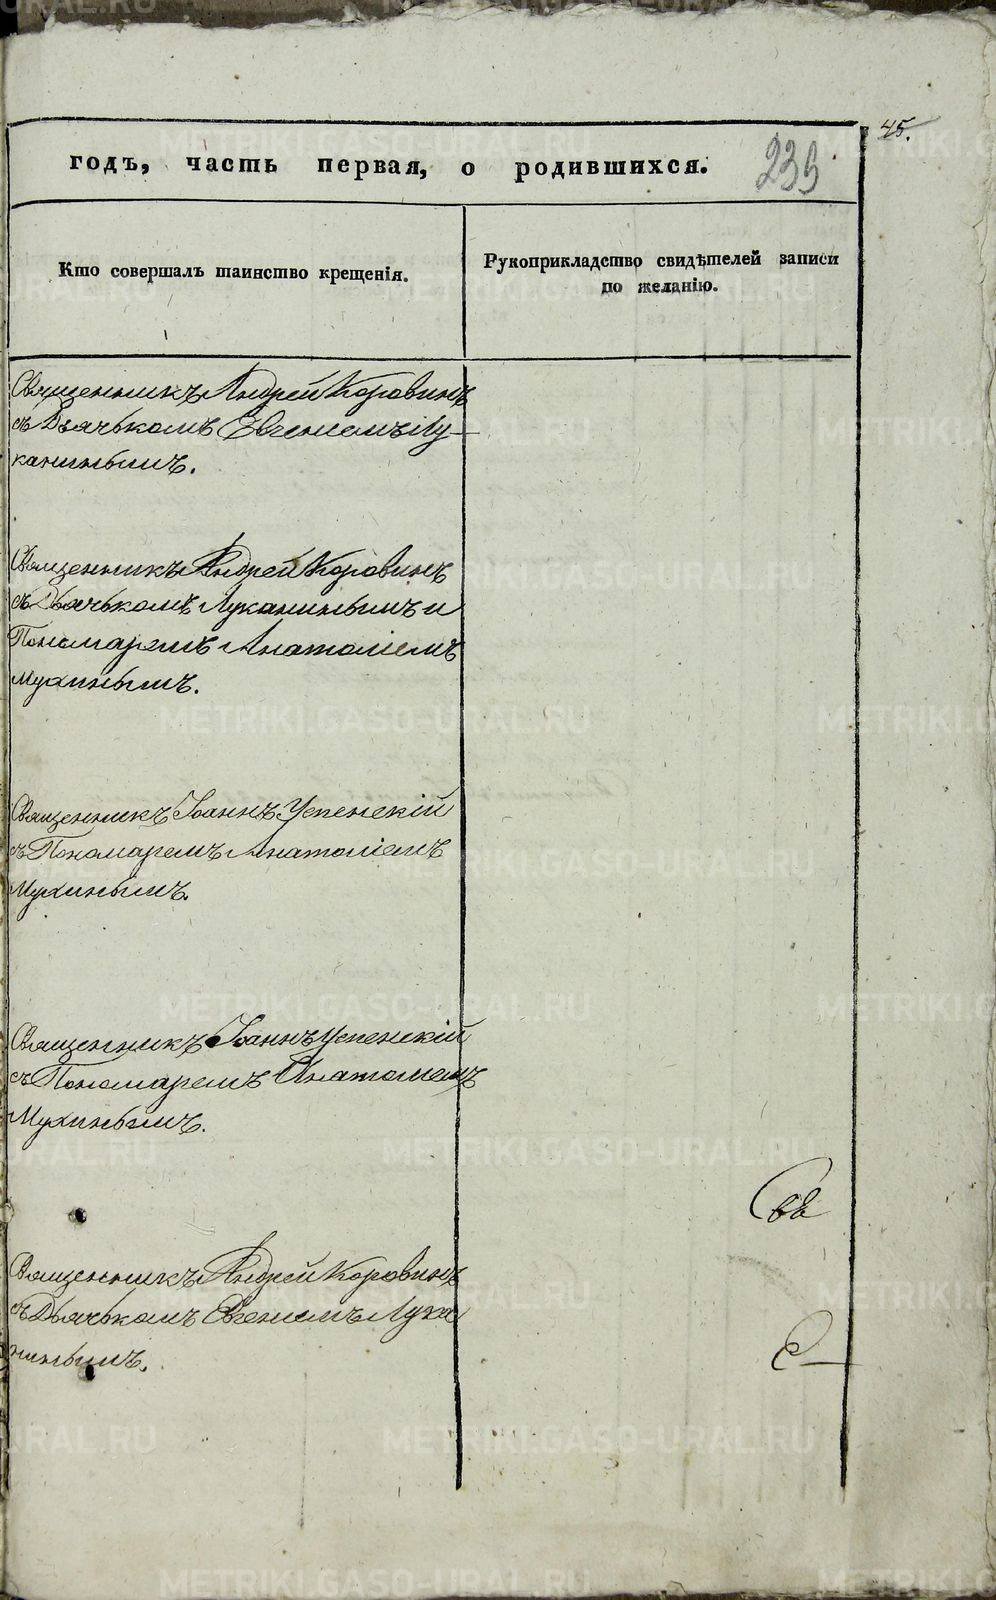 45.
годъ, часть первая, о родившихся.
239
Кто совершалъ таинство крещенія.
Рукоприкладство свидѣтелей записи
по желанію.
Священникъ Андрей Коровинъ
съ Дьячькомъ Евгеніемъ Лу-
канинымъ.
Священникъ Андрей Коровинъ
съ Дьячькомъ Луканинымъ и
Пономаремъ Анатоліемъ
Мухинымъ.
Священникъ Іоаннъ Успенскій
съ Пономаремъ Анатоліемъ
Мухинымъ.
Священникъ Іоаннъ Успенскій
съ Пономаремъ Анатоліемъ
Мухинымъ.
Священникъ Андрей Коровинъ
съ Дьячькомъ Евгеніемъ Лука
нинымъ.
METRIKI.GASO-URAL.RU